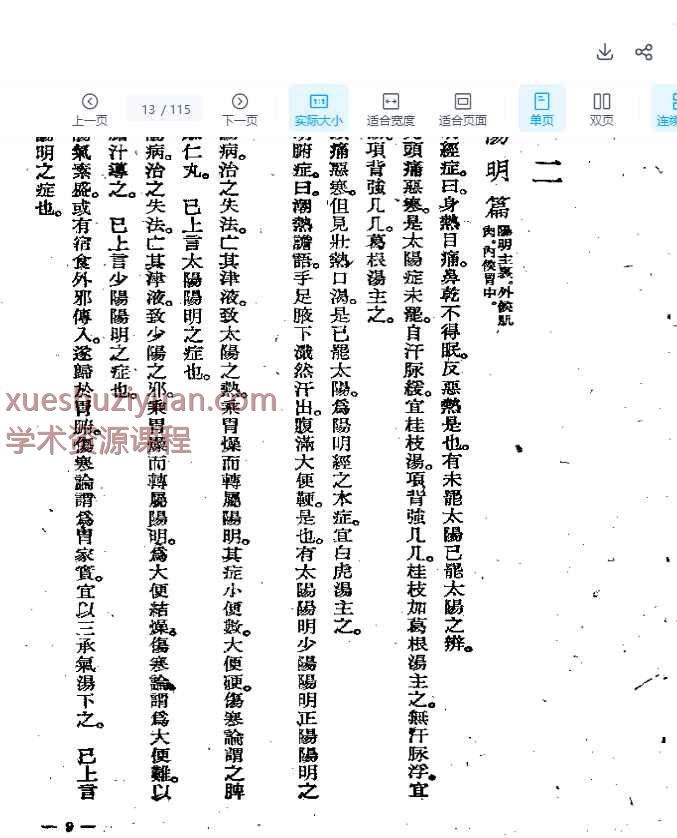 上一页
13 / 115
下一页
实际大小
适合宽度
适合页面
单页
双页
二
明篇
陽明主裏。外候肌
肉。內候胃中。
經症曰。身熱目痛。鼻乾不得眠。反惡熱是也。有未罷太陽已罷太陽之辨。
頭痛惡寒。是太陽症未罷。自汗脉緩。宜桂枝湯。項背強几几。桂枝加葛根湯主之。無汗脉浮。宜
項背強几几。葛根湯主之。
痛惡寒。但見壯熱口渴。是已罷太陽。為陽明經之本症。宜白虎湯主之。
腑症曰。潮熱譫語。手足腋下濈然汗出。腹滿大便鞕。是也。有太陽陽明少陽陽明正陽陽明之
病。治之失法。亡其津液。致太陽之熱。乘胃燥而轉屬陽明。其症小便數。大便硬。傷寒論謂之脾
仁丸。 已上言太陽陽明之症也。
病。治之失法。亡其津液。致少陽之邪。乘胃燥而轉屬陽明。為大便結燥。傷寒論謂為大便難。以
汁導之。 已上言少陽陽明之症也。
氣素盛。或有宿食。外邪傳入。遂歸於胃腑。傷寒論謂為胃家實。宜以三承氣湯下之。 已上言
明之症也。
— 9 —
xueshuziyuan.com
学术资源课程